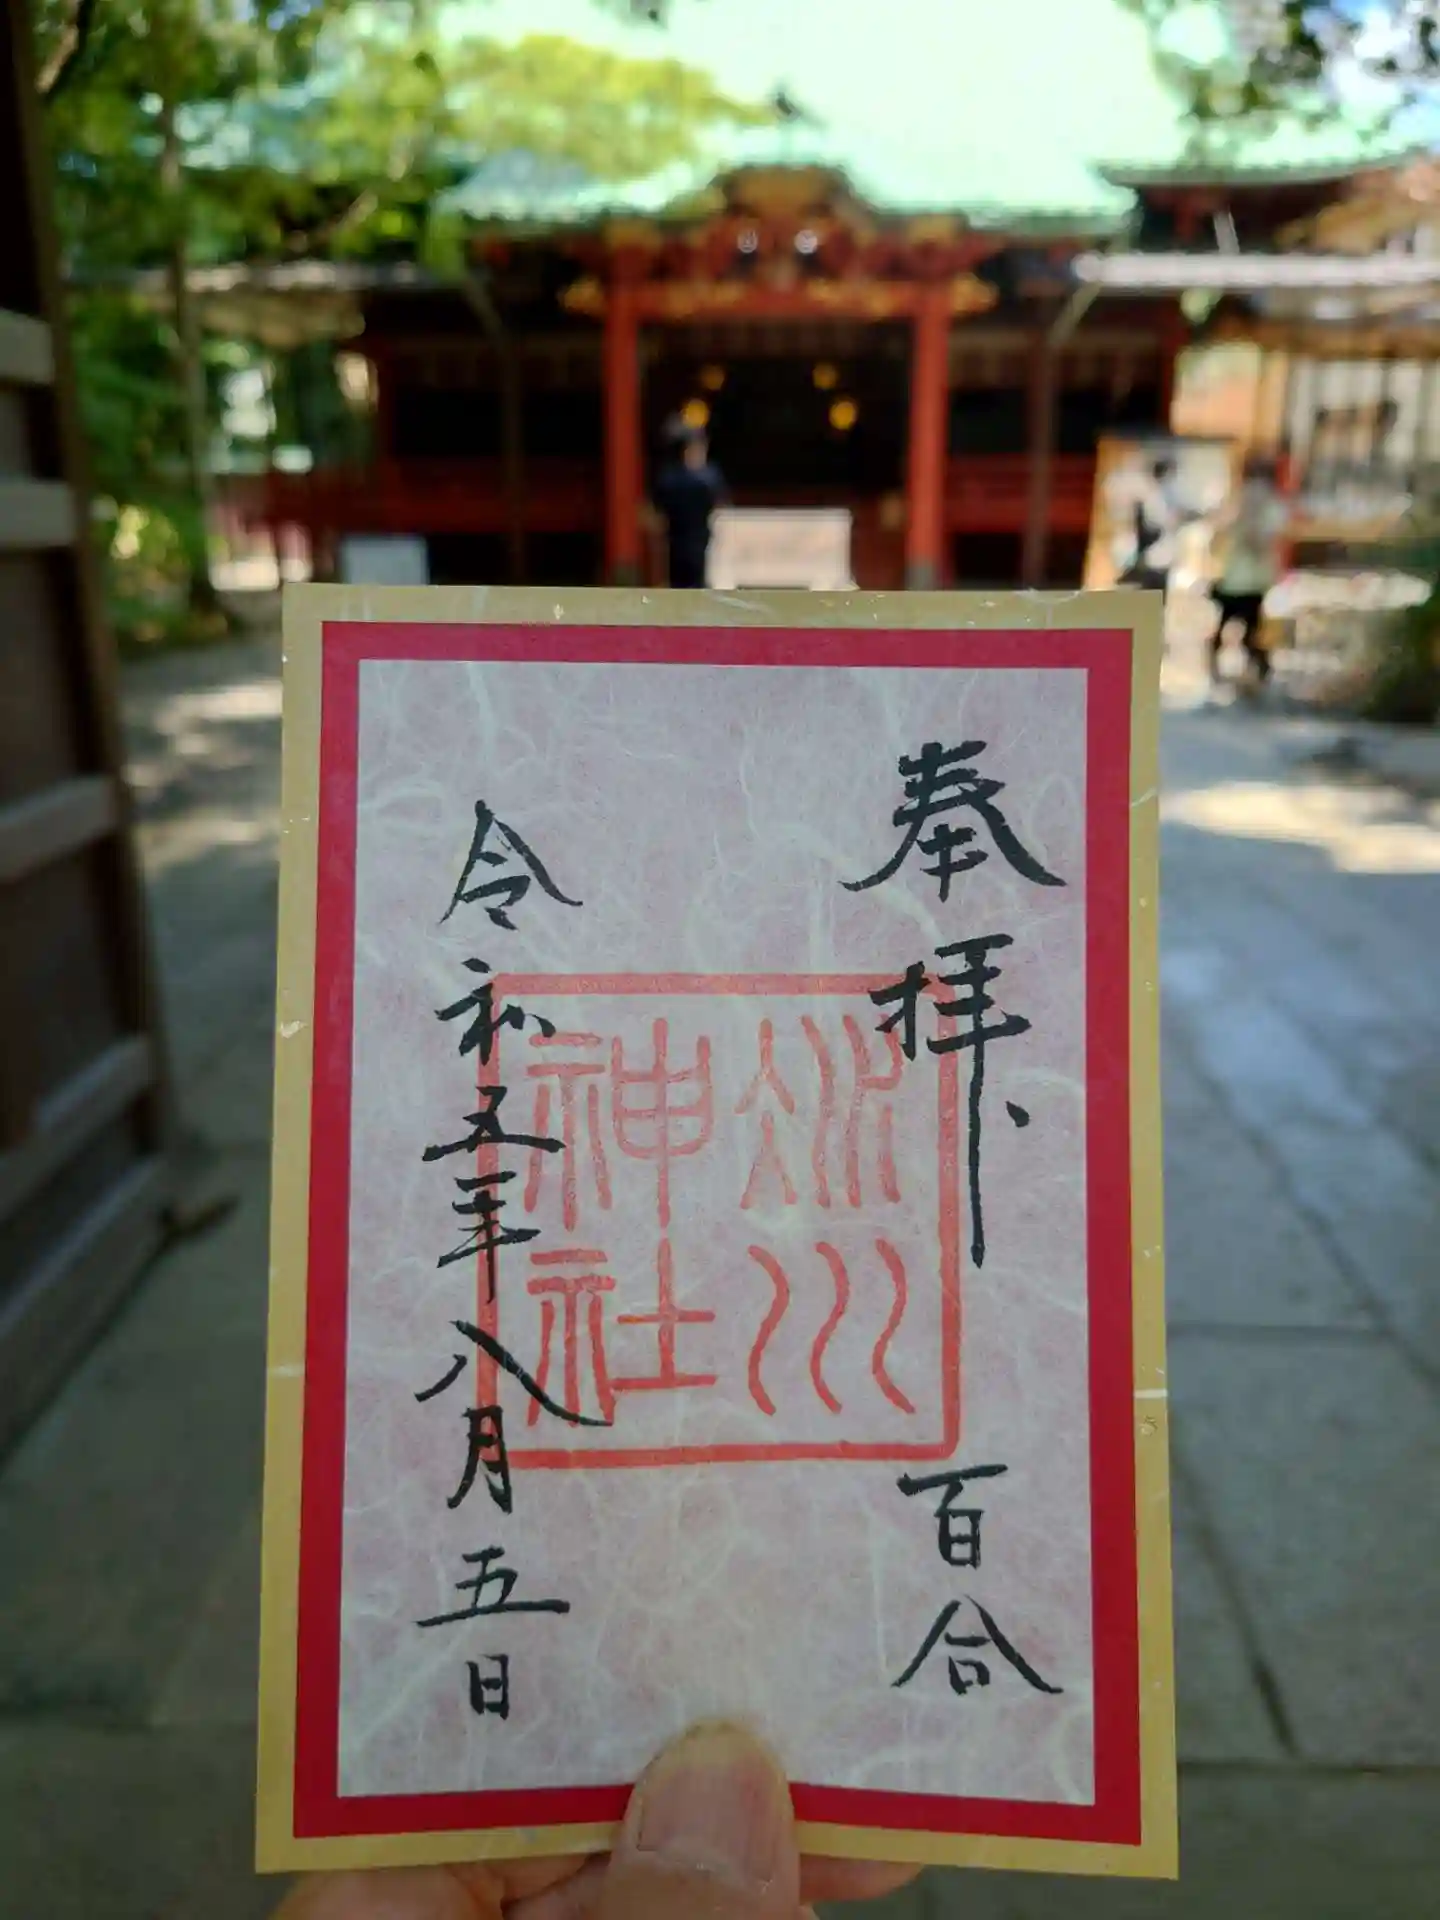 奉拝
百合
氷川
神社
令和五年八月五日